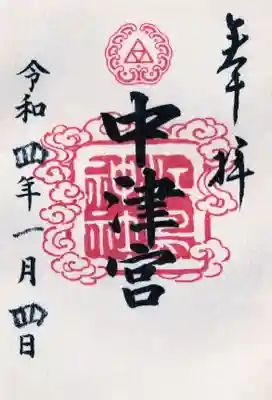 奉拝
中津宮
令和四年一月四日